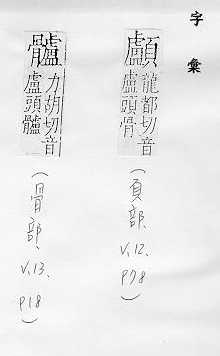 字彙
顱
龍都切音
盧頭骨
(頁部、
V.12、
P78)
髗
力胡切音
盧頭髗
(骨部、
V.13、
P18)